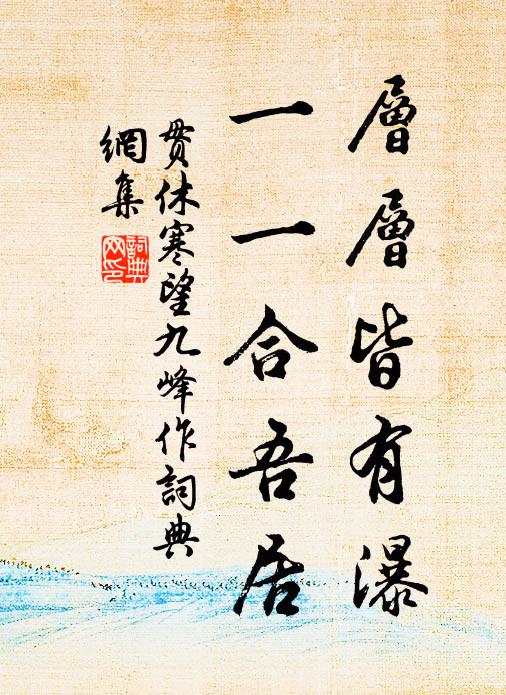 層層皆有瀑
一一合吾居
貫休寒望九峰作詞典
網集
詞典
网印